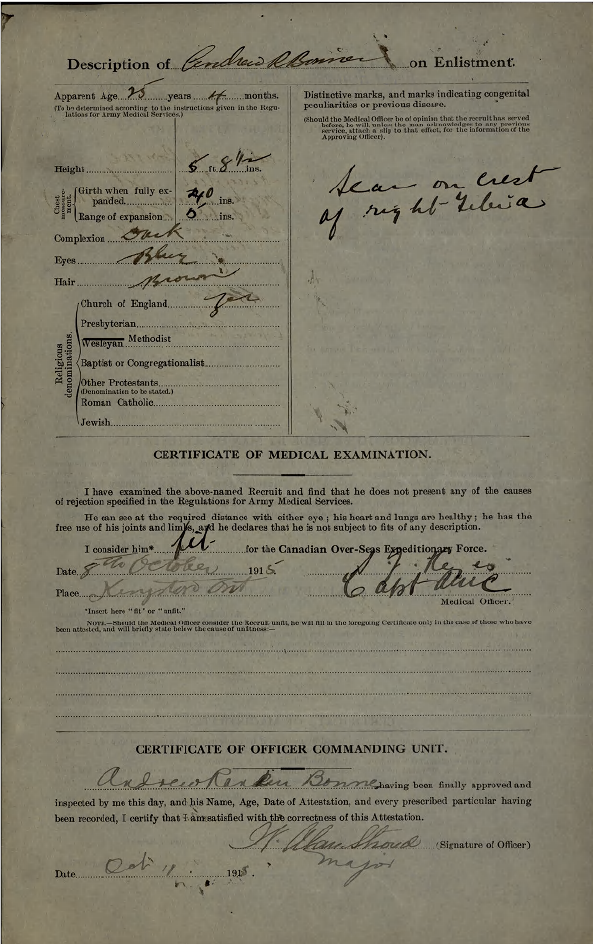 Description of Andrew R Bonner on Enlistment.
Apparent Age 25 years 4 months.
(To be determined according to the instructions given in the Regulations for Army Medical Services.)
Height 5 ft. 8 1/2 ins.
Chest measurement.
Girth when fully expanded 40 ins.
Range of expansion 5 ins.
Complexion Dark
Eyes Blue
Hair Brown
Religious denominations.
Church of England yes
Presbyterian
Wesleyan Methodist
Baptist or Congregationalist
Other Protestants
(Denomination to be stated.)
Roman Catholic
Jewish
Distinctive marks, and marks indicating congenital
peculiarities or previous disease.
(Should the Medical Officer be of opinion that the recruit has served
before, he will, unless the man acknowledges to any previous
service, attach a slip to that effect, for the information of the
Approving Officer).
Scar on crest
of right Tibia
CERTIFICATE OF MEDICAL EXAMINATION.
I have examined the above-named Recruit and find that he does not present any of the causes
of rejection specified in the Regulations for Army Medical Services.
He can see at the required distance with either eye; his heart and lungs are healthy; he has the
free use of his joints and limbs, and he declares that he is not subject to fits of any description.
I consider him* fit for the Canadian Over-Seas Expeditionary Force.
Date 8th October 1915
Place Kingston Ont Capt AMC
Medical Officer.
*Insert here "fit" or "unfit."
NOTE.—Should the Medical Officer consider the Recruit unfit, he will fill in the foregoing Certificate only in the case of those who have
been attested, and will briefly state below the cause of unfitness:—
CERTIFICATE OF OFFICER COMMANDING UNIT.
Andrew Rankin Bonner having been finally approved and
inspected by me this day, and his Name, Age, Date of Attestation, and every prescribed particular having
been recorded, I certify that I am satisfied with the correctness of this Attestation.
(Signature of Officer)
Major
Date Oct 11 1915.